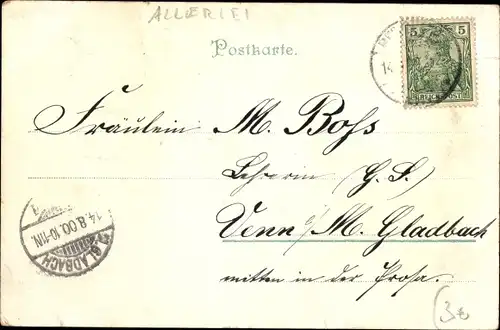 ALLERLEI
Postkarte.
5 5
REICHSPOST
14
Fräulein M. Boss
Lehrerin (G. S.)
Venn b/M. Gladbach
mitten in der Prosa.
14.8.00.10-11V.
GLADBACH
3e